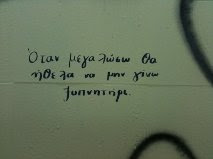 Όταν μεγαλώσω θα
ήθελα να μην γίνω
ξυπνητήρι.